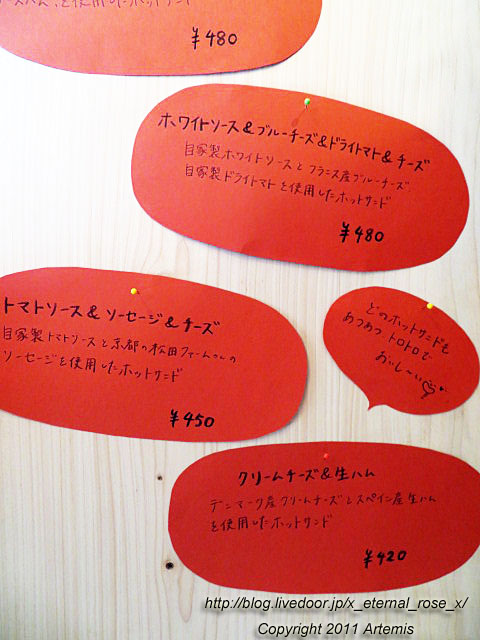 スハム、を使用したホットサンド
¥480
ホワイトソース&ブルーチーズ&ドライトマト&チーズ
自家製ホワイトソースとフランス産ブルーチーズ
自家製ドライトマトを使用したホットサンド
¥480
トマトソース&ソーセージ&チーズ
自家製トマトソースと京都の松田ファームさんの
ソーセージを使用したホットサンド
¥450
どのホットサンドも
あつあつトロトロで
おいし〜い
クリームチーズ&生ハム
デンマーク産クリームチーズとスペイン産生ハム
を使用したホットサンド
¥420
http://blog.livedoor.jp/x_eternal_rose_x/
Copyright 2011 Artemis